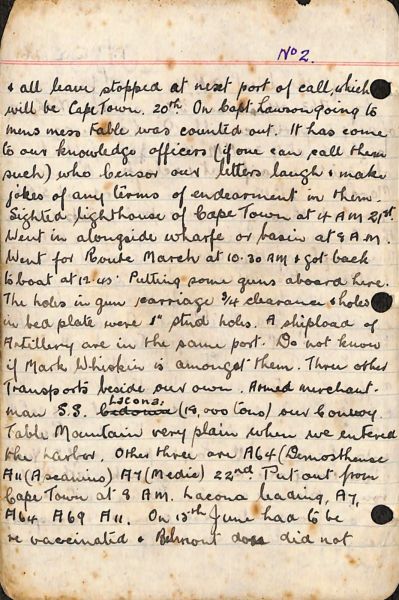 No 2.
& all leave stopped at next port of call, which
will be Cape Town. 20th. On Capt Lawson going to
mens mess table was counted out. It has come
to our knowledge officers (if one can call them
such) who censor our letters laugh & make
jokes of any terms of endearment in them.
Sighted lighthouse of Cape Town at 4 AM 21st.
Went in alongside wharfe or basin at 9 A.M.
Went for Route March at 10.30 AM & got back
to boat at 12.45. Putting some guns aboard here.
The holes in gun carriage 3/4 clearance & holes
in bed plate were 1" stud holes. A shipload of
Artillery are in the same port. Do not know
if Mark Whiskin is amongst them. Three other
Transports beside our own. Armed merchant-
Lacona.
man S.S. (18,000 tons) our Convoy
Table Mountain very plain when we entered
the harbor. Other three are A64 (Demosthenese
A11 (Ascanius) A7 (Medic) 22nd. Put out from
Cape Town at 8 AM. Lacona leading, A7,
A64 A69 A11. On 13th June had to be
re vaccinated & Belmont does did not